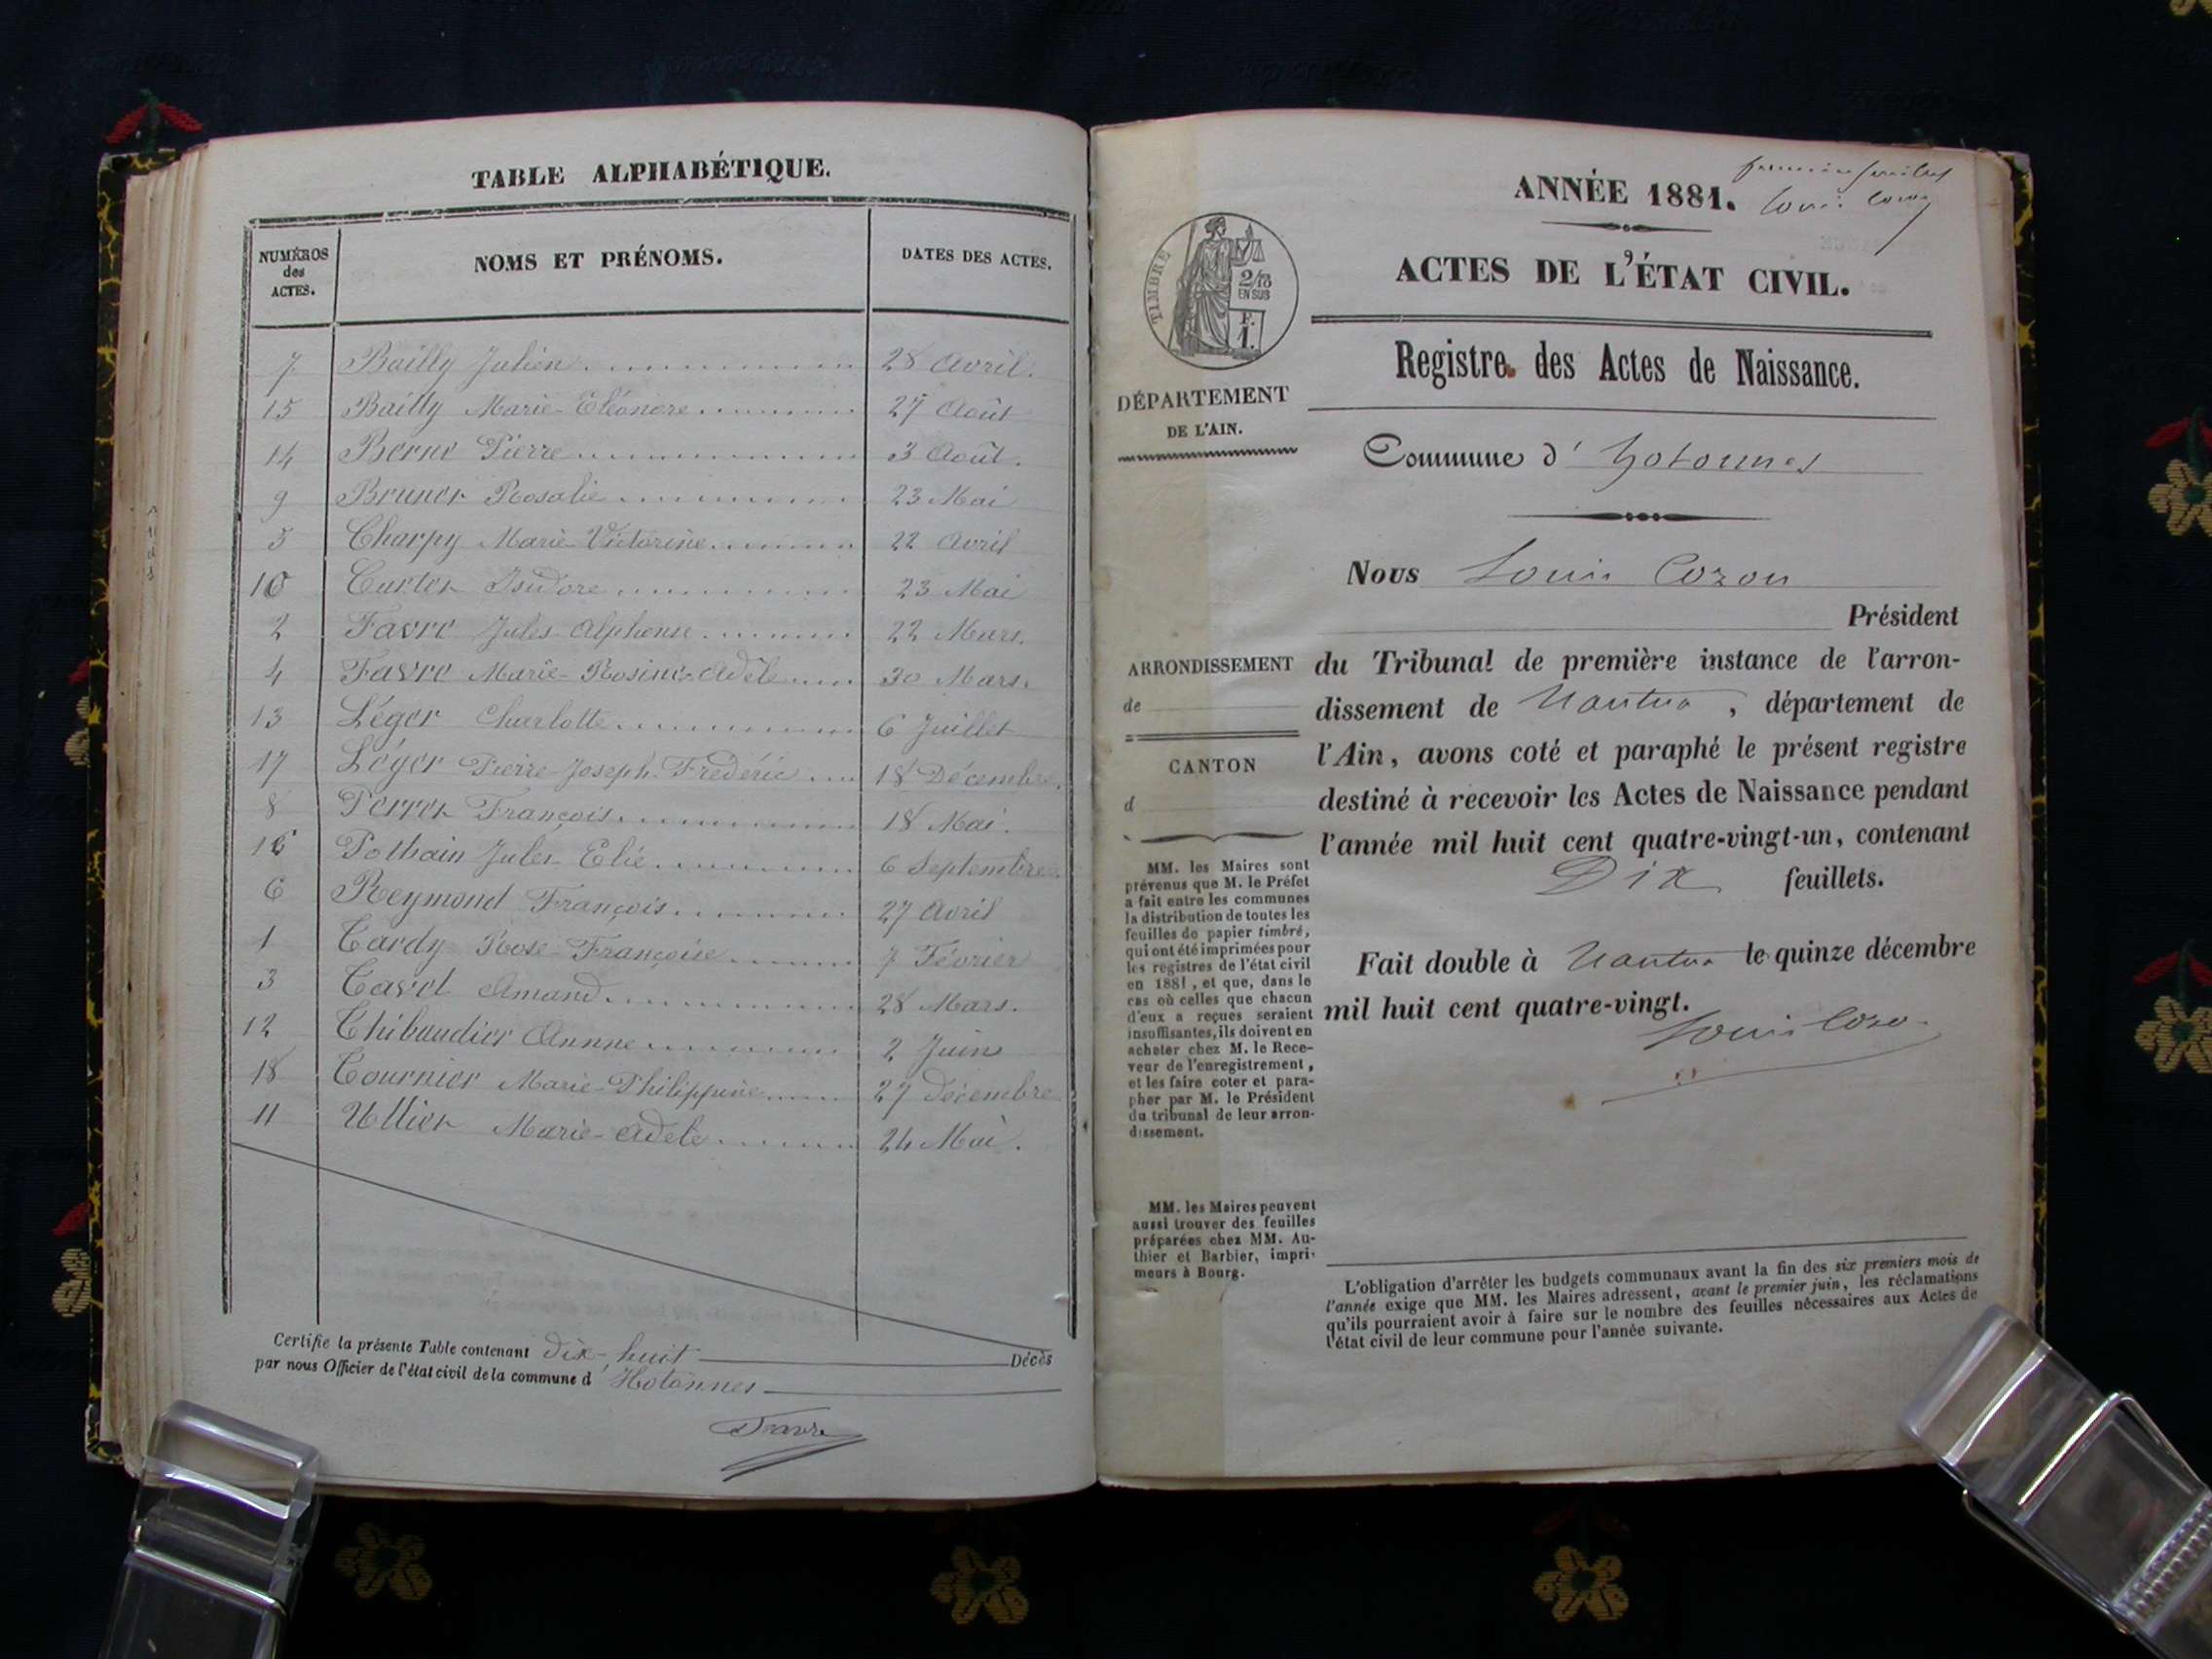 TABLE ALPHABÉTIQUE.
NUMÉROS des ACTES.
NOMS ET PRÉNOMS.
DATES DES ACTES.
7 Bailly Julien 28 Avril.
15 Bailly Marie-Eléonore 27 Août
14 Berne Pierre 3 Août.
9 Brunet Rosalie 23 Mai
5 Charpy Marie-Victorine 22 Avril
10 Curtet Isidore 23 Mai
2 Favre Jules-Alphonse 22 Mars.
4 Favre Marie-Rosine-Adèle 30 Mars.
13 Léger Charlotte 6 Juillet
17 Léger Pierre-Joseph-Frédéric 18 Décembre.
8 Perret François 18 Mai.
16 Pothain Jules-Elie 6 Septembre.
6 Reymond François 27 Avril
1 Tardy Rose-Françoise 7 Février
3 Tavel Amand 28 Mars.
12 Thibaudier Annne 2 Juin
18 Tournier Marie-Philippine 27 Décembre
11 Ullier Marie-Adèle 24 Mai.
Certifie la présente Table contenant dix-huit Décès
par nous Officier de l'état civil de la commune d'Hotonnes
Favre
ANNÉE 1881.
Louis Cozon
ACTES DE L'ÉTAT CIVIL.
TIMBRE
2/10
EN SUS
F.
1.
Registre des Actes de Naissance.
DÉPARTEMENT
DE L'AIN.
Commune d' hotonnes
Nous Louis Cozon
Président
ARRONDISSEMENT
de
CANTON
d
du Tribunal de première instance de l'arron-
dissement de Nantua, département de
l'Ain, avons coté et paraphé le présent registre
destiné à recevoir les Actes de Naissance pendant
l'année mil huit cent quatre-vingt-un, contenant
Dix feuillets.
Fait double à Nantua le quinze décembre
mil huit cent quatre-vingt.
Louis Cozon
MM. les Maires sont
prévenus que M. le Préfet
a fait entre les communes
la distribution de toutes les
feuilles de papier timbré,
qui ont été imprimées pour
les registres de l'état civil
en 1881, et que, dans le
cas où celles que chacun
d'eux a reçues seraient
insuffisantes, ils doivent en
acheter chez M. le Rece-
veur de l'enregistrement,
et les faire coter et para-
pher par M. le Président
du tribunal de leur arron-
dissement.
MM. les Maires peuvent
aussi trouver des feuilles
préparées chez MM. Au-
thier et Barbier, impri-
meurs à Bourg.
L'obligation d'arrêter les budgets communaux avant la fin des six premiers mois de
l'année exige que MM. les Maires adressent, avant le premier juin, les réclamations
qu'ils pourraient avoir à faire sur le nombre des feuilles nécessaires aux Actes de
l'état civil de leur commune pour l'année suivante.